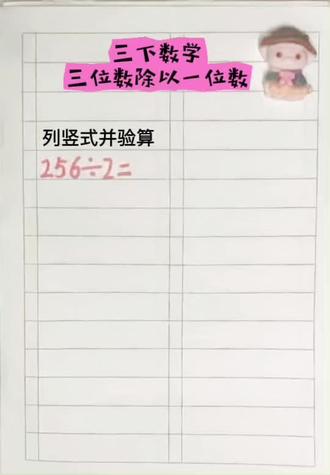 三下数学
三位数除以一位数
列竖式并验算
256÷2=